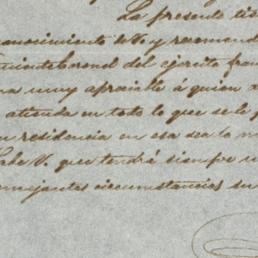 La presente
onocimiento de V. y recomend
niente Coronel del ejército fran
na muy apreciable á quien
atienda en todo lo que se le
su residencia en esa sea lo m
que tendrá siempre
emejantes circunstancias su